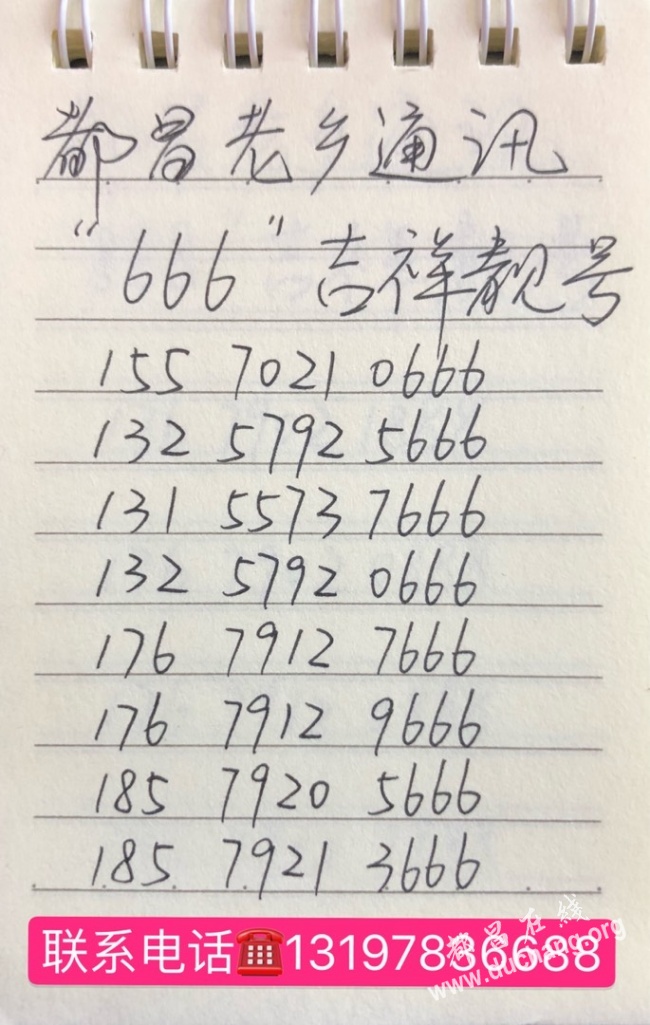 都昌老乡通讯
"666"吉祥靓号
155 7021 0666
132 5792 5666
131 5573 7666
132 5792 0666
176 7912 7666
176 7912 9666
185 7920 5666
185 7921 3666
都昌在线
联系电话☎️13197836688
www.duchang.org